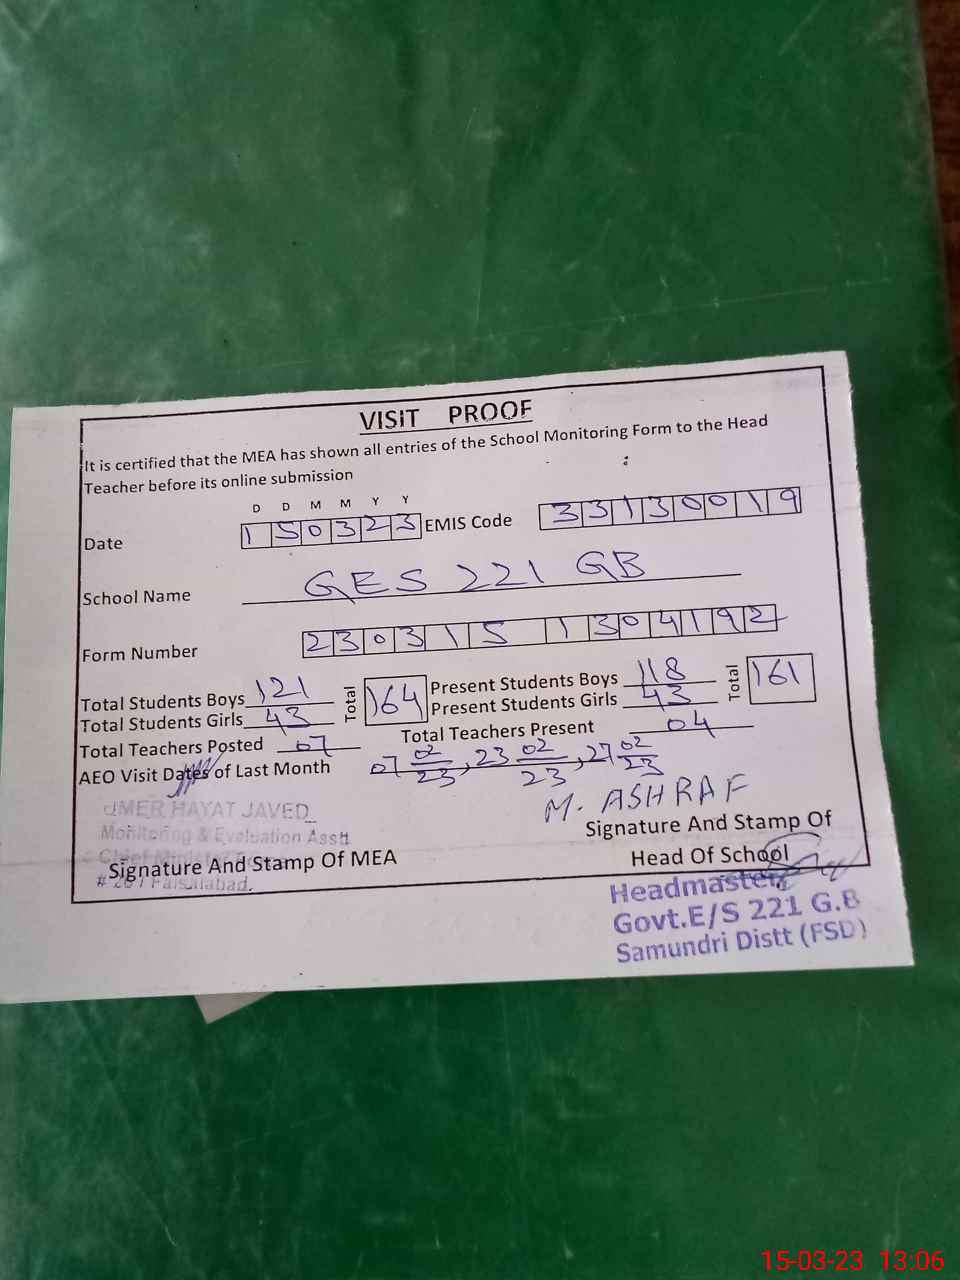 VISIT PROOF
It is certified that the MEA has shown all entries of the School Monitoring Form to the Head
Teacher before its online submission
D D M M Y Y
Date 150323 EMIS Code 33130019
School Name GES 221 GB
Form Number 230315 1304192
Total Students Boys 121 Total 164 Present Students Boys 118 Total 161
Total Students Girls 43 Present Students Girls 43
Total Teachers Posted 07 Total Teachers Present 04
AEO Visit Dates of Last Month 07 02/23, 23 02/23, 27 02/23
M. ASHRAF
UMER HAYAT JAVED
Monitoring & Evaluation Asstt
Signature And Stamp Of MEA
Faisalabad.
Signature And Stamp Of
Head Of School
Headmaster
Govt.E/S 221 G.B
Samundri Distt (FSD)
15-03-23 13:06